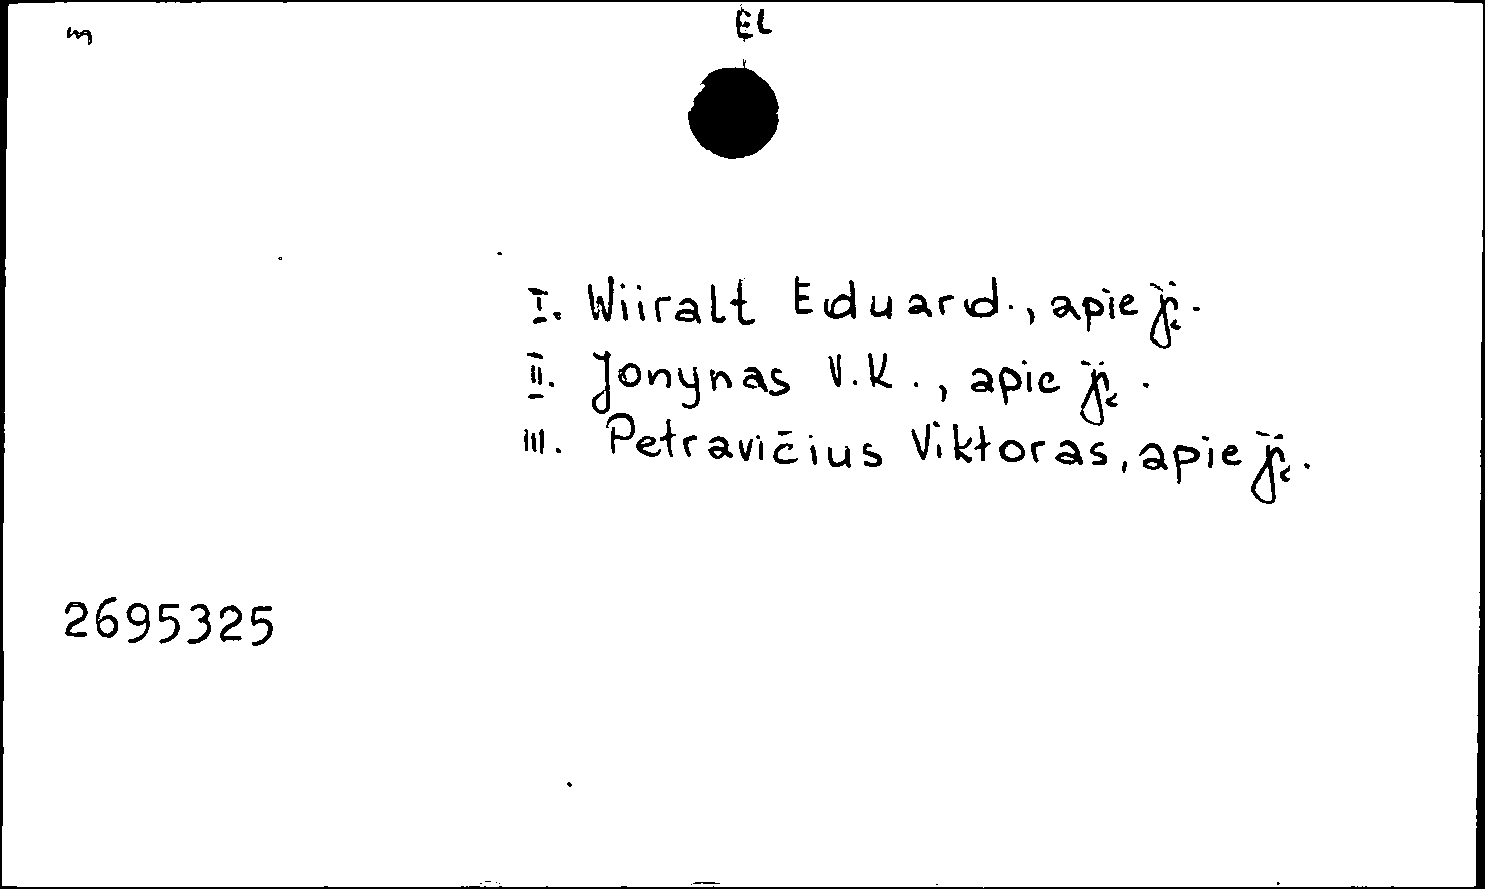 m
EL
I. Wiiralt Eduard., apie jį.
II. Jonynas V.K., apie jį.
III. Petravičius Viktoras, apie jį.
2695325